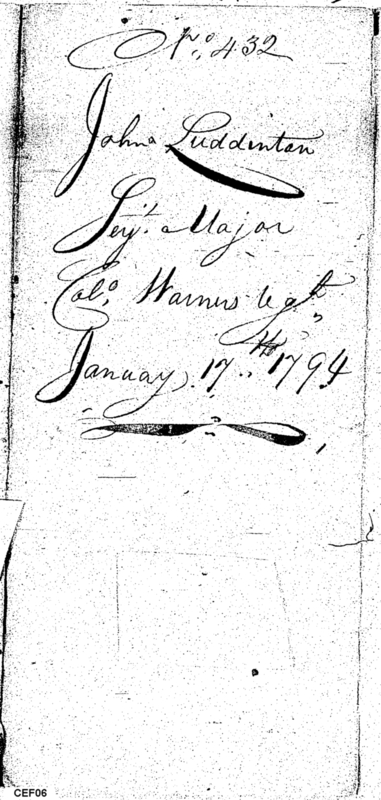 No, 432
John Luddinton
Serjt. Major
Colo, Warners Regt
January 17th 1794
CEF06